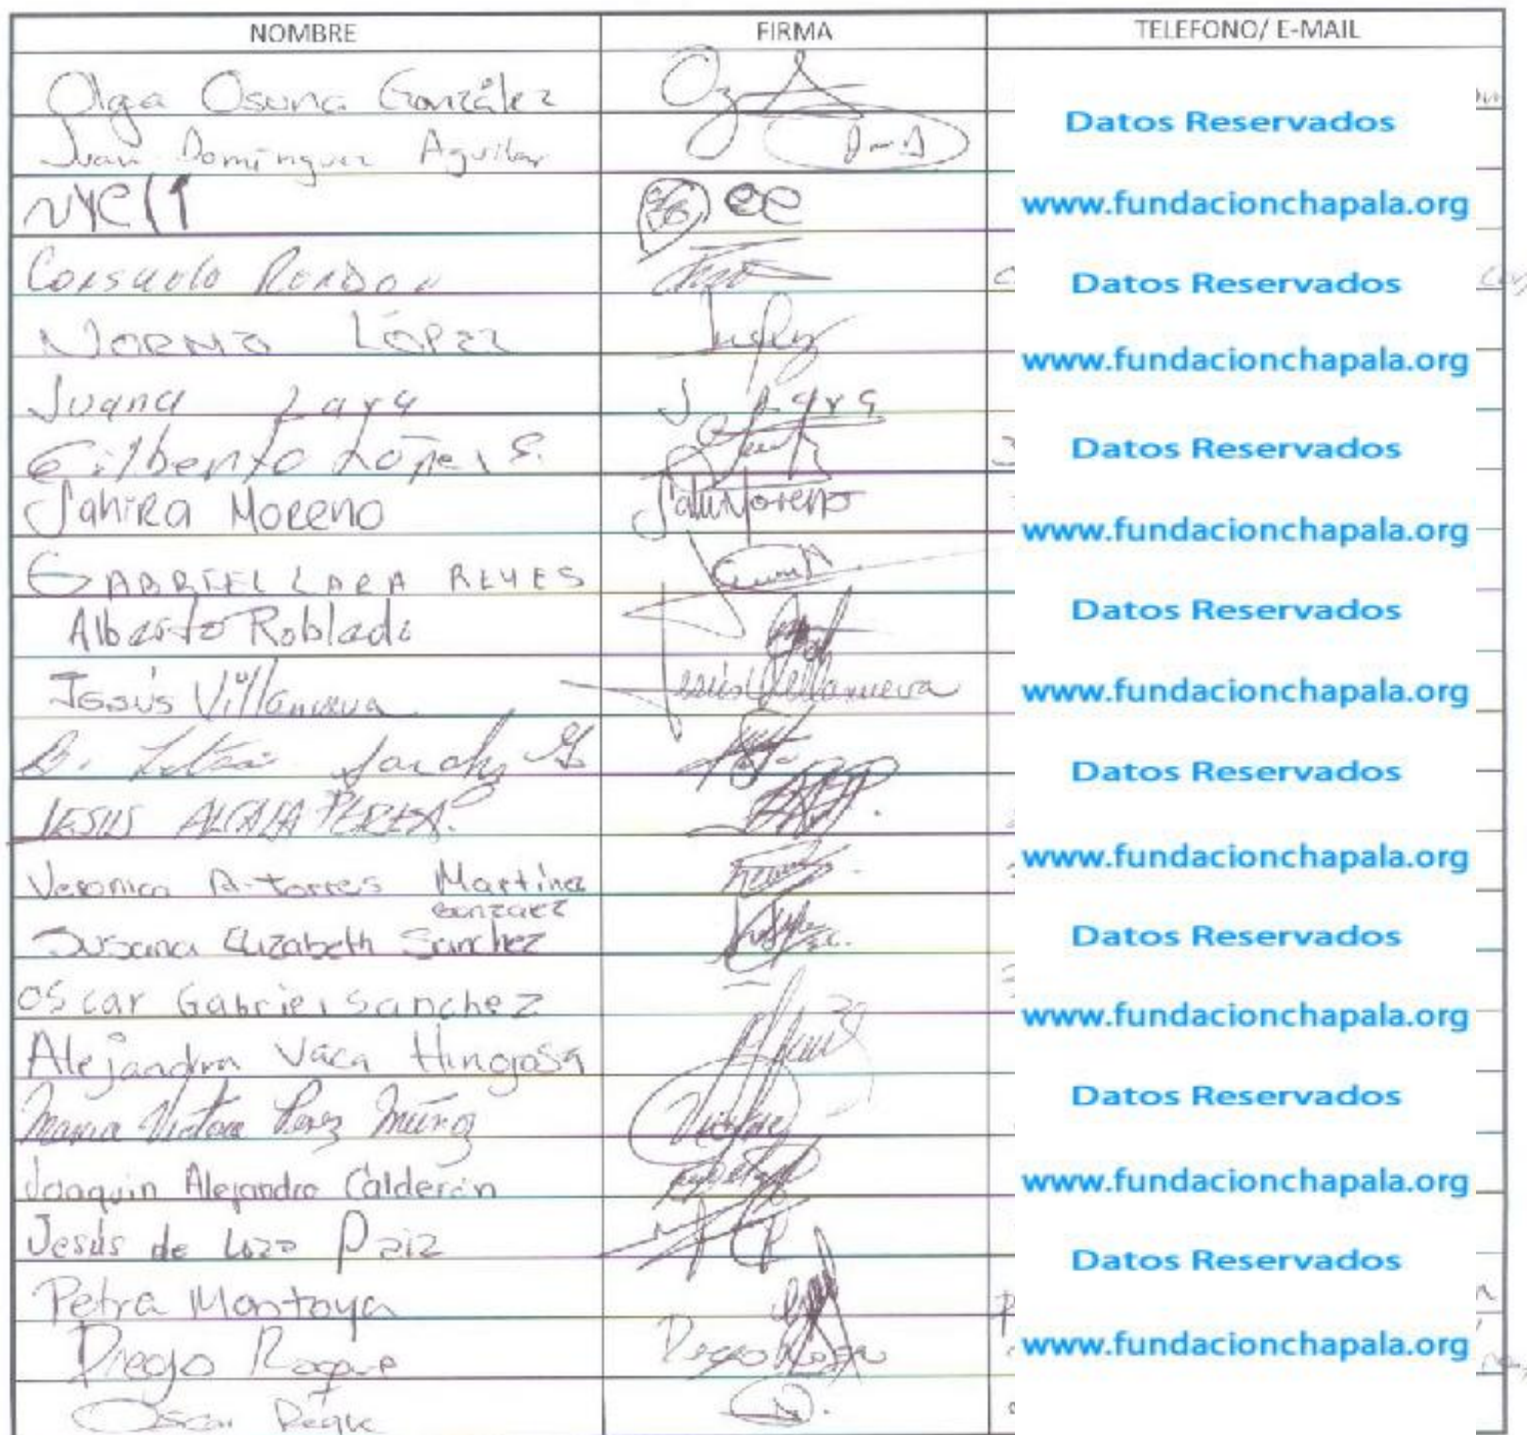 NOMBRE FIRMA TELEFONO/ E-MAIL
Olga Osuna González
Juan Domínguez Aguilar D-A
Datos Reservados
www.fundacionchapala.org
Consuelo Rendon
Datos Reservados
Norma López
www.fundacionchapala.org
Juana Lara J Lara
Gilberto López S.
Datos Reservados
Sahira Moreno Moreno
www.fundacionchapala.org
GABRIEL LARA REYES
Alberto Robledo
Datos Reservados
Jesús Villanueva Jesús Villanueva
www.fundacionchapala.org
Datos Reservados
JESUS ALCALA PEREZ.
www.fundacionchapala.org
Veronica A. Torres Martínez
Gonzalez
Susana Elizabeth Sanchez
Datos Reservados
Oscar Gabriel Sanchez
www.fundacionchapala.org
Alejandra Vaca Hinojosa
Maria Victoria Perez Muñoz
Datos Reservados
Joaquin Alejandro Calderón
www.fundacionchapala.org
Jesús de
Datos Reservados
Petra Montoya
Diego Roque Diego Roque
www.fundacionchapala.org
Oscar Roque